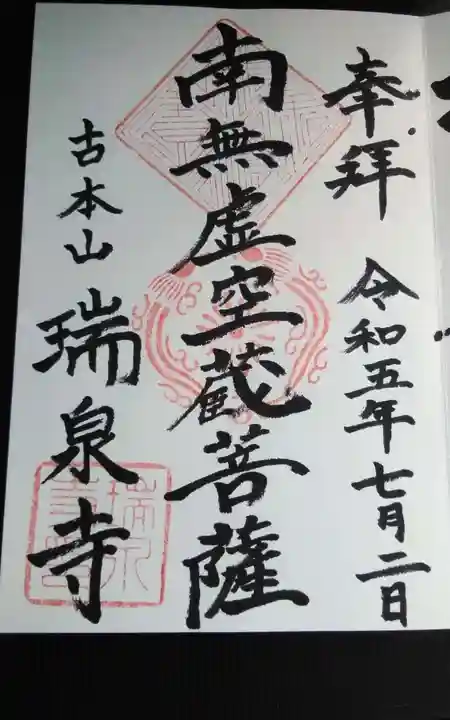 奉拝 令和五年七月二日
南無虚空蔵菩薩
古本山 瑞泉寺